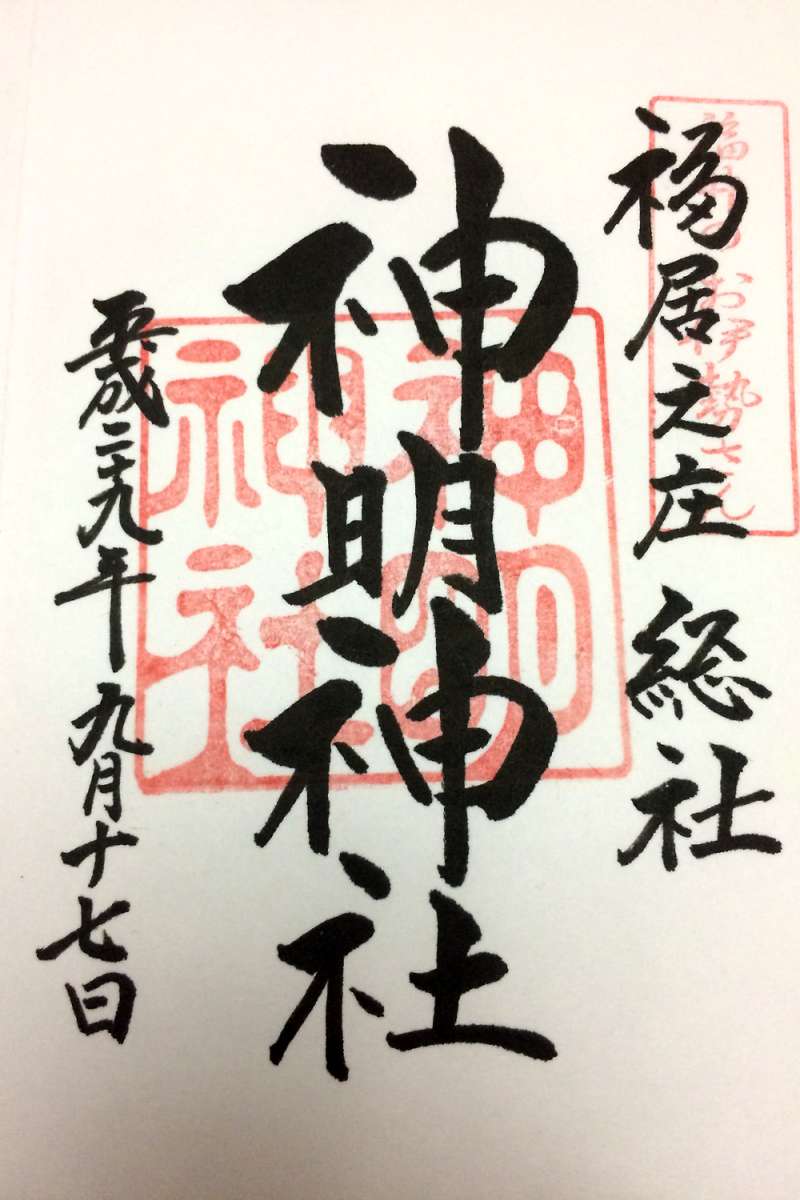 福居之庄 総社
福居のお伊勢さん
神明神社
神明
神社
平成二十九年 九月十七日